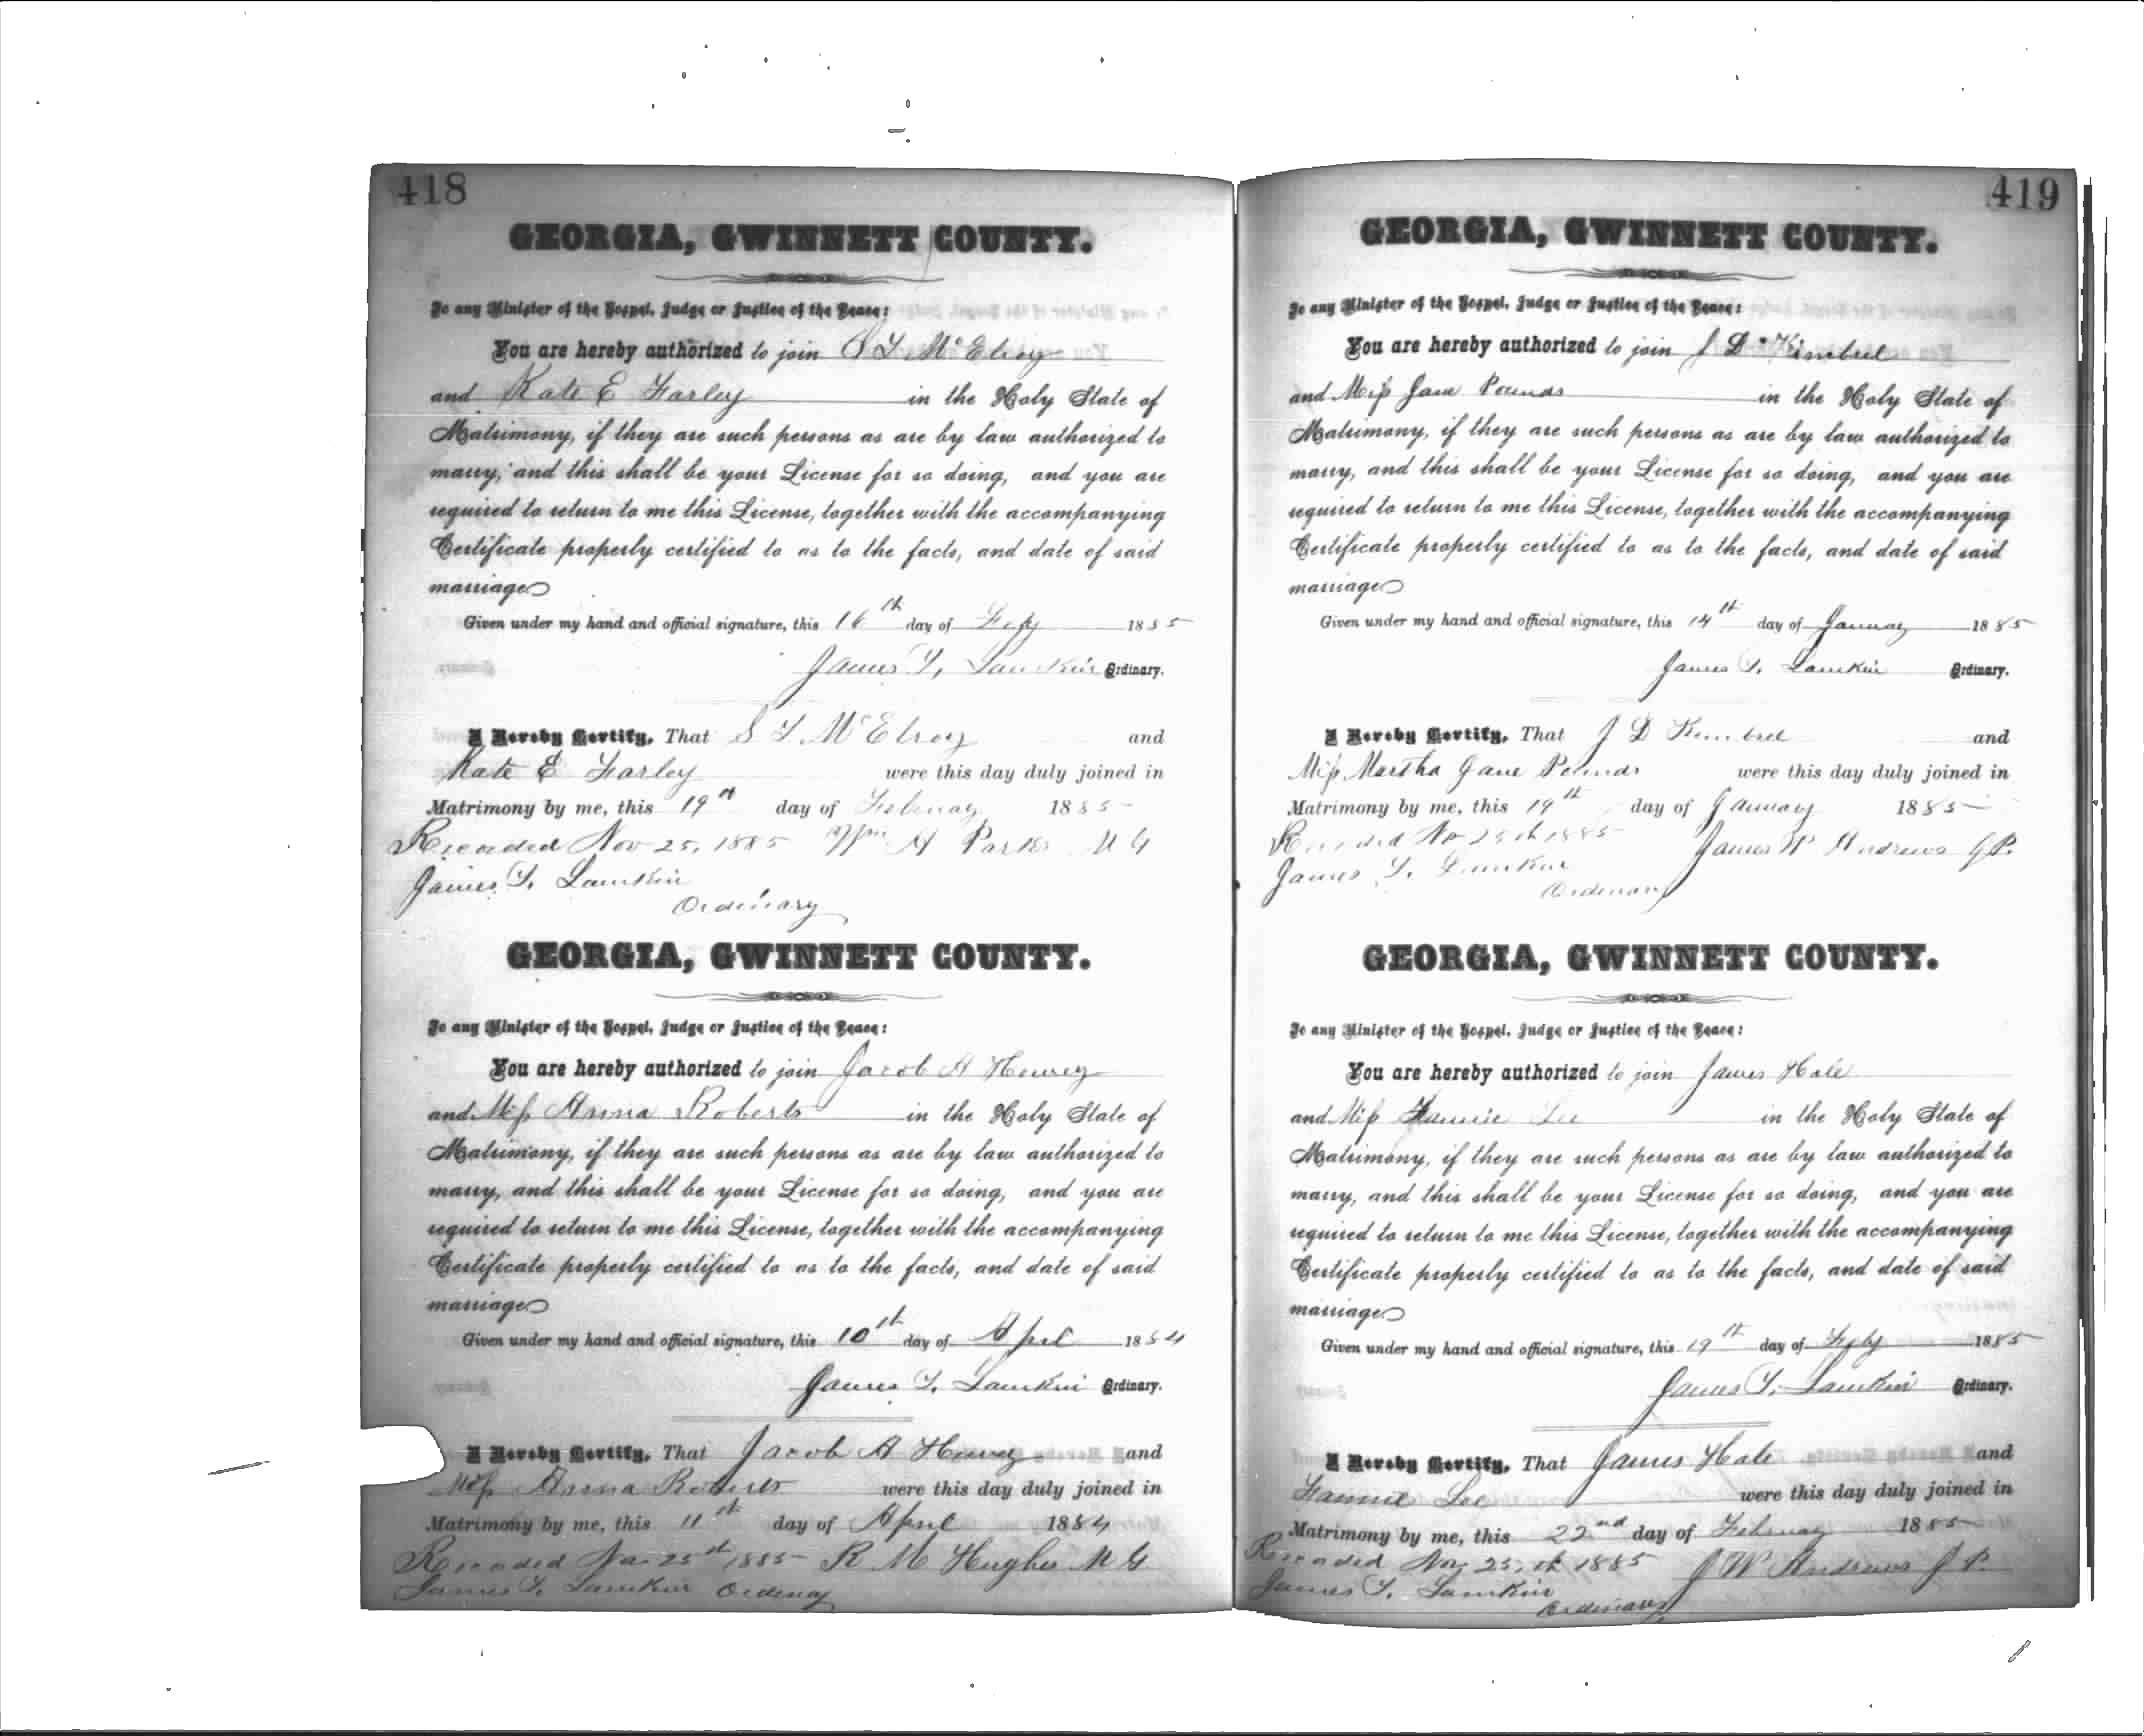 418
GEORGIA, GWINNETT COUNTY.
To any Minister of the Gospel, Judge or Justice of the Peace:
You are hereby authorized to join S T McElroy
and Kate E Farley in the Holy State of
Matrimony, if they are such persons as are by law authorized to
marry, and this shall be your License for so doing, and you are
required to return to me this License, together with the accompanying
Certificate properly certified to as to the facts, and date of said
marriage
Given under my hand and official signature, this 16th day of Feby 1885
James T. Lamkin Ordinary.
I Hereby Certify, That S T McElroy and
Kate E Farley were this day duly joined in
Matrimony by me, this 19th day of February 1885
Recorded Nov 25, 1885 Wm A Parks M G
James T. Lamkin
Ordinary
GEORGIA, GWINNETT COUNTY.
To any Minister of the Gospel, Judge or Justice of the Peace:
You are hereby authorized to join Jacob A
and Miss Anna Roberts in the Holy State of
Matrimony, if they are such persons as are by law authorized to
marry, and this shall be your License for so doing, and you are
required to return to me this License, together with the accompanying
Certificate properly certified to as to the facts, and date of said
marriage
Given under my hand and official signature, this 10th day of April 1884
James T. Lamkin Ordinary.
I Hereby Certify, That Jacob A and
Miss Anna Roberts were this day duly joined in
Matrimony by me, this 11th day of April 1884
Recorded Nov 25th 1885 R M Hughes M G
James T. Lamkin Ordinary
419
GEORGIA, GWINNETT COUNTY.
To any Minister of the Gospel, Judge or Justice of the Peace:
You are hereby authorized to join J D Kimbrel
and Miss Jane Pounds in the Holy State of
Matrimony, if they are such persons as are by law authorized to
marry, and this shall be your License for so doing, and you are
required to return to me this License, together with the accompanying
Certificate properly certified to as to the facts, and date of said
marriage
Given under my hand and official signature, this 14th day of January 1885
James T. Lamkin Ordinary.
I Hereby Certify, That J D Kimbrel and
Miss Martha Jane Pounds were this day duly joined in
Matrimony by me, this 19th day of January 1885
Recorded Nov 25th 1885 James W Andrews J P.
James T. Lamkin
Ordinary
GEORGIA, GWINNETT COUNTY.
To any Minister of the Gospel, Judge or Justice of the Peace:
You are hereby authorized to join James Hale
and Miss Fannie Lee in the Holy State of
Matrimony, if they are such persons as are by law authorized to
marry, and this shall be your License for so doing, and you are
required to return to me this License, together with the accompanying
Certificate properly certified to as to the facts, and date of said
marriage
Given under my hand and official signature, this 19th day of Feby 1885
James T. Lamkin Ordinary.
I Hereby Certify, That James Hale and
Fannie Lee were this day duly joined in
Matrimony by me, this 22nd day of February 1885
Recorded Nov 25, th 1885 J W Andrews J P.
James T. Lamkin
Ordinary